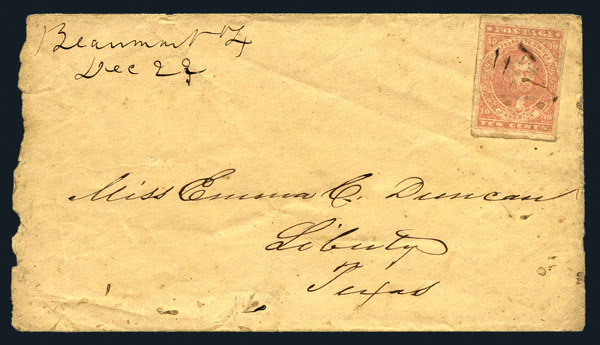 Beaumont Tx
Dec 22
POSTAGE
TEN CENTS
Miss Emma C. Duncan
Liberty
Texas